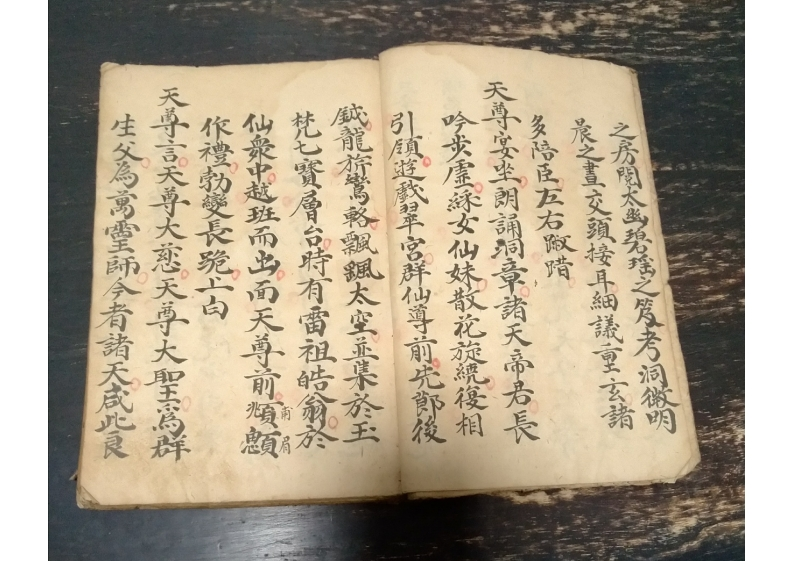 之房閱太幽碧瑤之笈考洞微明
晨之晝交頭接耳細議重玄諸
多陪臣左右踧踖
天尊宴坐朗誦洞章諸天帝君長
吟步虛綵女仙姝散花旋繞復相
引領遊戲翠宮群仙導前先節後
鉞龍旂鸞輅飄颻太空並集於玉
梵七寶層台時有雷祖皓翁於
仙衆中越班而出面天尊前頫顖
甫 眉
兆
作禮勃變長跪上白
天尊言天尊大慈天尊大聖為群
生父為萬靈師今者諸天咸此良